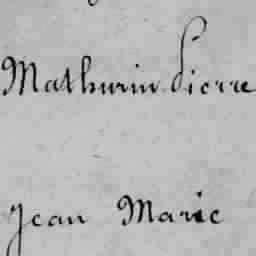 Mathurin Pierre
Jean Marie